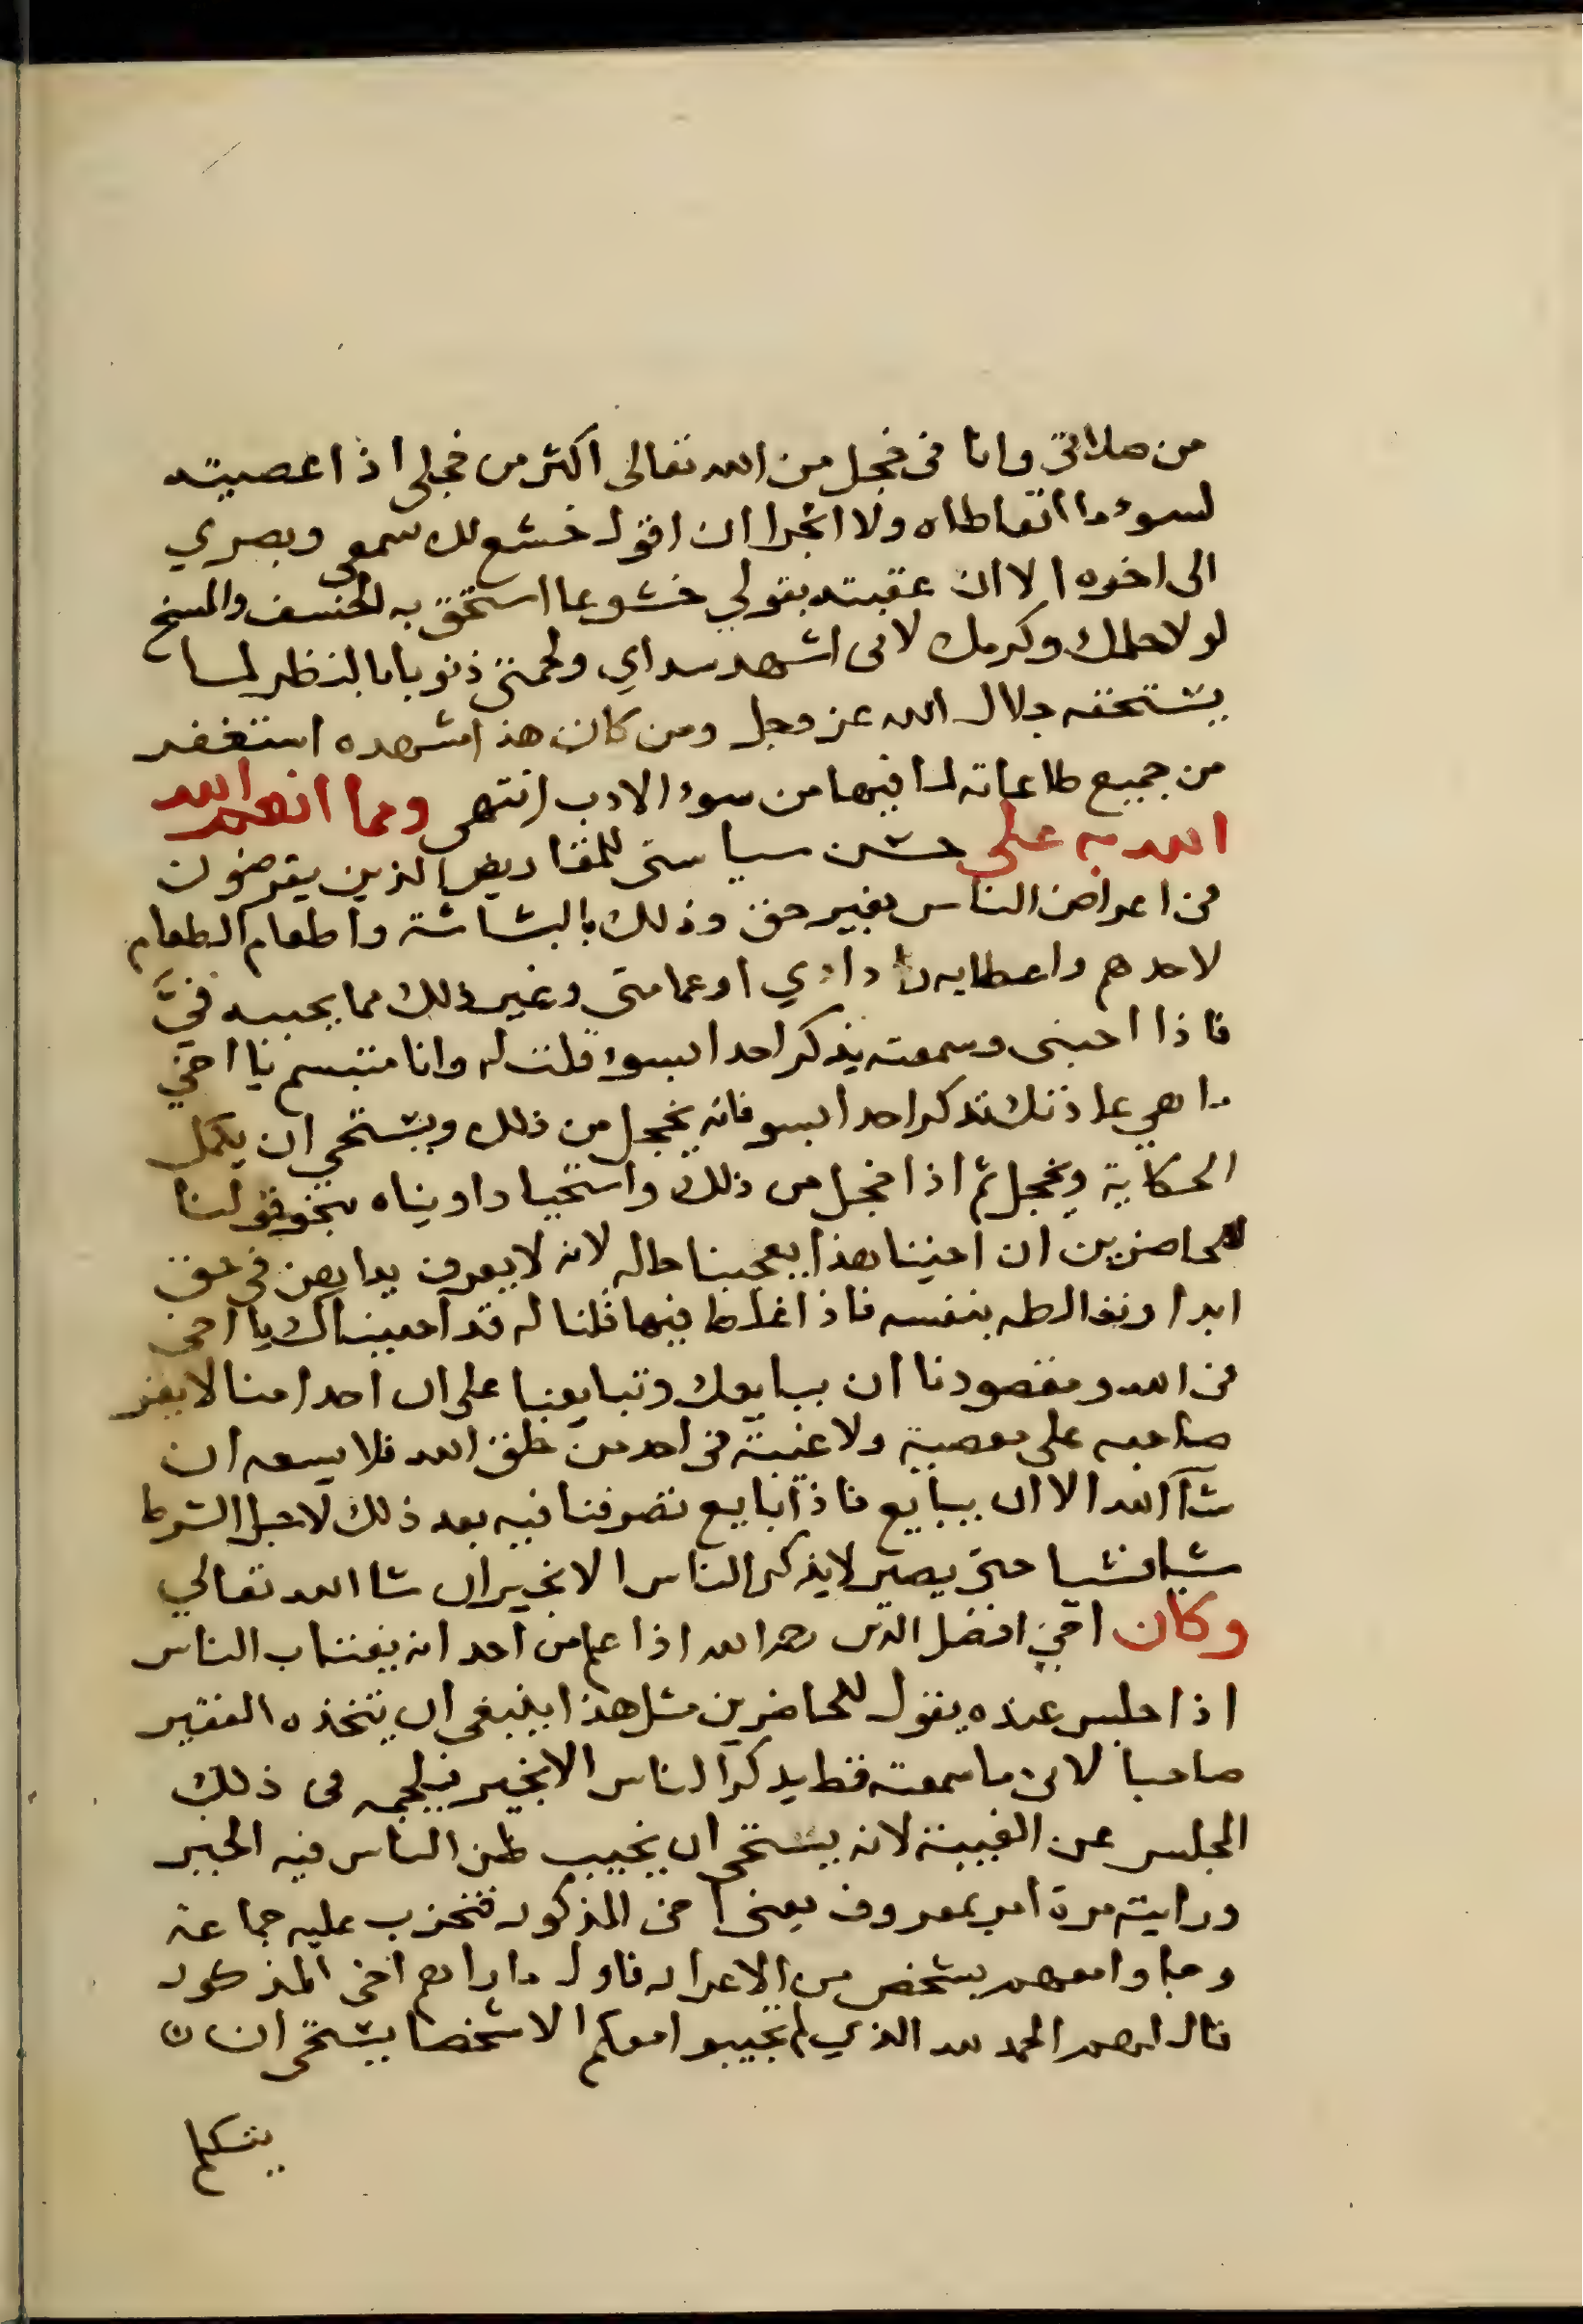 من صلاتي وانا في خجل من الله تعالى اكثر من خجلي اذا عصيته
لسوء ما اتعاطاه ولا اتجرا ان اقول خشع لك سمعي وبصري
الى اخره الا ان عقبته بقولي خشوعا استحق به الخسف والمسخ
لولا حلمك وكرمك لاني اشهد سداي ولحمتي ذنوبا بالنظر لما
يستحقه جلال الله عز وجل ومن كان هذا مشهده استغفر
من جميع طاعاته لما فيها من سوء الادب انتهى ومما انعم الله
الله به علي حسن سياستي للمقاريض الذين يقرضون
في اعراض الناس بغير حق وذلك بالبشاشة واطعام الطعام
لاحدهم واعطايه ردادي او عمامتي وغير ذلك مما يحببه فيَّ
فاذا احبني وسمعته يذكر احدا بسوء قلت له وانا متبسم يا اخي
ما هي عادتك تذكر احدا بسو فانه يخجل من ذلك ويستحي ان يكمل
الحكاية ويخجل ثم اذا خجل من ذلك واستحيا داويناه بنحو قولنا
للحاضرين ان اخينا هذا يعجبنا حاله لانه لا يعرف يداهن في حق
ابدا ونغالطه بنفسه فاذا غلط فيها قلنا له قد احببناك يا اخي
في الله ومقصودنا ان نبايعك وتبايعنا على ان احدا منا لا يقر
صاحبه على معصية ولا غيبة في احد من خلق الله فلا يسعه ان
شآ الله الا ان يبايع فاذا بايع تصرفنا فيه بعد ذلك لاجل الشرط
شيا فشيا حتى يصير لا يذكر الناس الا بخير ان شا الله تعالي
وكان اخي افضل الدين رحمه الله اذا علم من احد انه يغتاب الناس
اذا جلس عنده يقول للحاضرين مثل هذا ينبغي ان يتخذه الفقير
صاحبا لاني ما سمعته قط يذكر الناس الا بخير فيلجمه في ذلك
المجلس عن الغيبة لانه يستحي ان يخيب ظن الناس فيه الخير
ورايته مرة امر بمعروف يعني اخي المذكور فتحزب عليه جماعة
وجاوا معهم بشخص من الاعدا له فاول ما راهم اخي المذكور
قال لهم الحمد لله الذي لم تجيبوا معكم الا شخصا يستحي ان
يتكلم